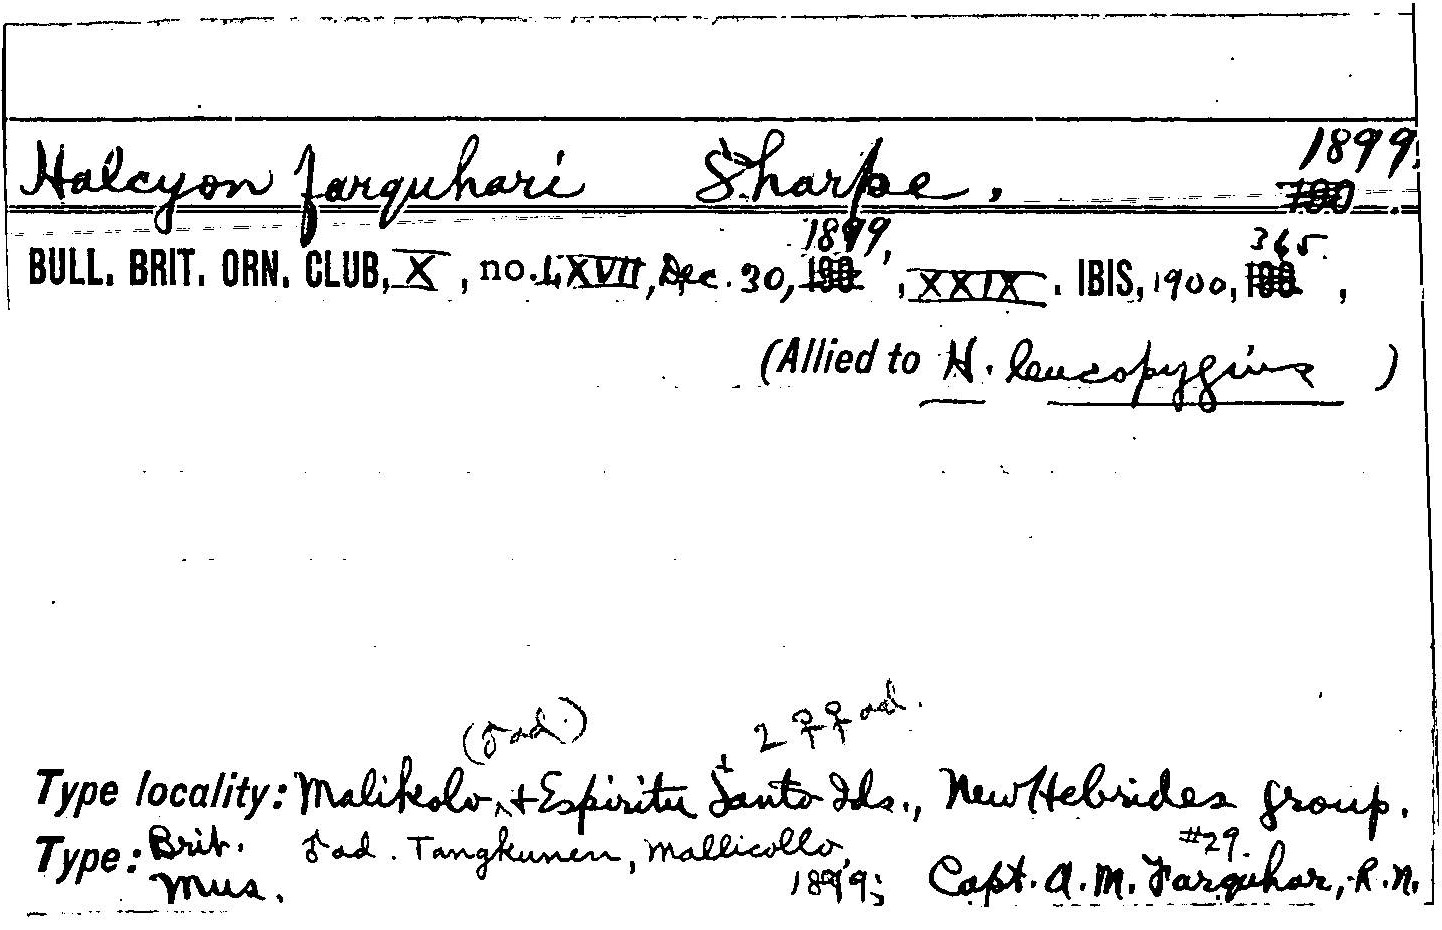 Halcyon farquhari Sharpe, 1899.
BULL. BRIT. ORN. CLUB, X, no. LXVII, Dec. 30, 1899, XXIX. IBIS, 1900, 365.
(Allied to H. leucopygius )
(♂ ad.) 2 ♀♀ ad.
Type locality: Malikolo, + Espiritu Santo Ids., New Hebrides group.
Type: Brit. Mus. ♂ ad. Tangkunen, Mallicollo, 1899; #29. Capt. A. M. Farquhar, R.N.